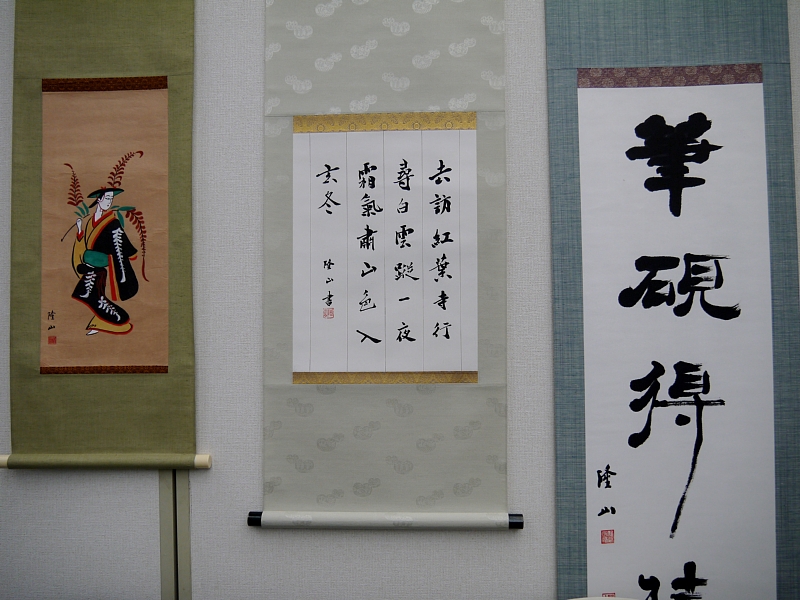 筆硯得
隆山
去訪紅葉寺行
尋白雲蹤一夜
霜氣肅山色入
玄冬
隆山書
隆山